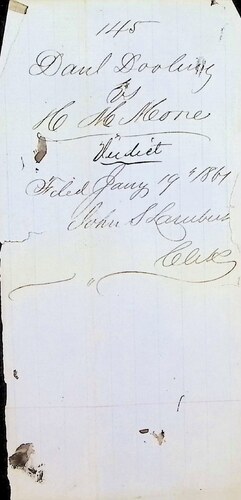 145
Danl Dooling
vs
H M Moore
Verdict
Filed Jany 19th 1861
John S Lambert
Clerk